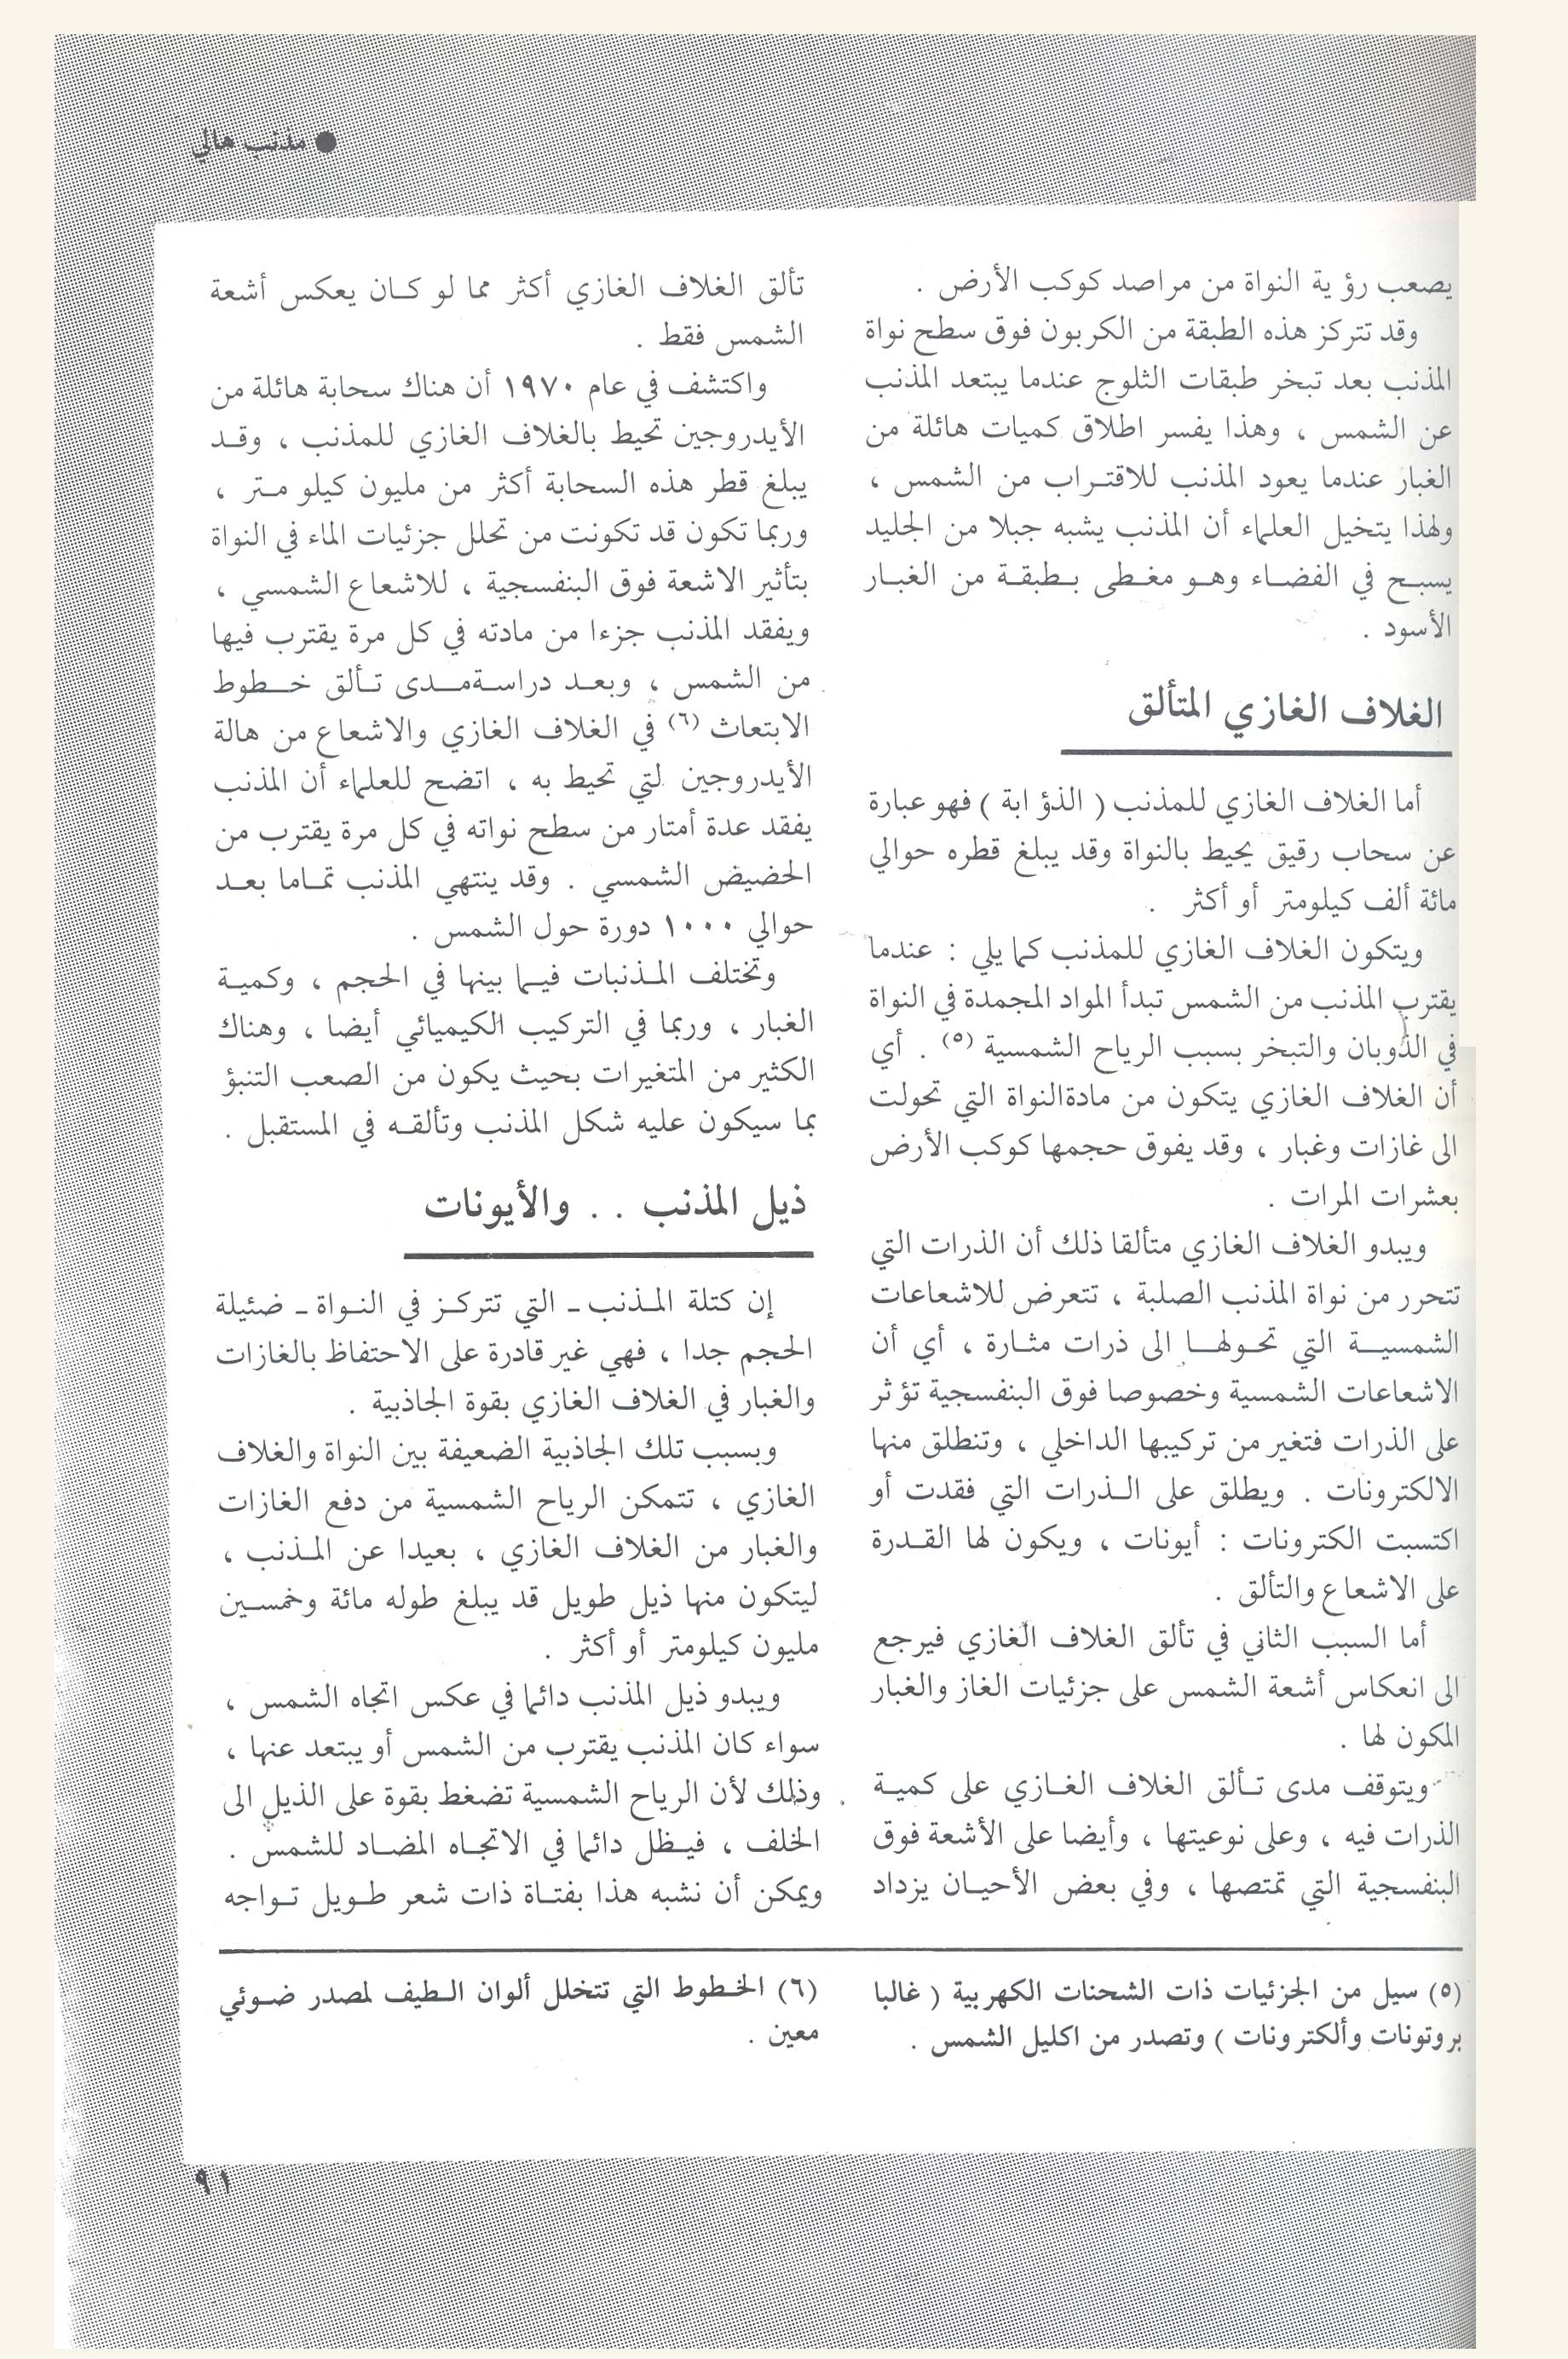 ● مذنب هالي
يصعب رؤية النواة من مراصد كوكب الأرض .
وقد تتركز هذه الطبقة من الكربون فوق سطح نواة
المذنب بعد تبخر طبقات الثلوج عندما يبتعد المذنب
عن الشمس ، وهذا يفسر اطلاق كميات هائلة من
الغبار عندما يعود المذنب للاقتراب من الشمس ،
ولهذا يتخيل العلماء أن المذنب يشبه جبلا من الجليد
يسبح في الفضاء وهو مغطى بطبقة من الغبار
الأسود .
الغلاف الغازي المتألق
أما الغلاف الغازي للمذنب ( الذؤابة ) فهو عبارة
عن سحاب رقيق يحيط بالنواة وقد يبلغ قطره حوالي
مائة ألف كيلومتر أو أكثر .
ويتكون الغلاف الغازي للمذنب كما يلي : عندما
يقترب المذنب من الشمس تبدأ المواد المجمدة في النواة
في الذوبان والتبخر بسبب الرياح الشمسية (٥) . أي
أن الغلاف الغازي يتكون من مادةالنواة التي تحولت
الى غازات وغبار ، وقد يفوق حجمها كوكب الأرض
بعشرات المرات .
ويبدو الغلاف الغازي متألقا ذلك أن الذرات التي
تتحرر من نواة المذنب الصلبة ، تتعرض للاشعاعات
الشمسية التي تحولها الى ذرات مثارة ، أي أن
الاشعاعات الشمسية وخصوصا فوق البنفسجية تؤثر
على الذرات فتغير من تركيبها الداخلي ، وتنطلق منها
الالكترونات . ويطلق على الذرات التي فقدت أو
اكتسبت الكترونات : أيونات ، ويكون لها القدرة
على الاشعاع والتألق .
أما السبب الثاني في تألق الغلاف الغازي فيرجع
الى انعكاس أشعة الشمس على جزئيات الغاز والغبار
المكون لها .
ويتوقف مدى تألق الغلاف الغازي على كمية
الذرات فيه ، وعلى نوعيتها ، وأيضا على الأشعة فوق
البنفسجية التي تمتصها ، وفي بعض الأحيان يزداد
تألق الغلاف الغازي أكثر مما لو كان يعكس أشعة
الشمس فقط .
واكتشف في عام ١٩٧٠ أن هناك سحابة هائلة من
الأيدروجين تحيط بالغلاف الغازي للمذنب ، وقد
يبلغ قطر هذه السحابة أكثر من مليون كيلو متر ،
وربما تكون قد تكونت من تحلل جزئيات الماء في النواة
بتأثير الاشعة فوق البنفسجية ، للاشعاع الشمسي ،
ويفقد المذنب جزءا من مادته في كل مرة يقترب فيها
من الشمس ، وبعد دراسةمدى تألق خطوط
الابتعاث (٦) في الغلاف الغازي والاشعاع من هالة
الأيدروجين لتي تحيط به ، اتضح للعلماء أن المذنب
يفقد عدة أمتار من سطح نواته في كل مرة يقترب من
الحضيض الشمسي . وقد ينتهي المذنب تماما بعد
حوالي ١٠٠٠ دورة حول الشمس .
وتختلف المذنبات فيما بينها في الحجم ، وكمية
الغبار ، وربما في التركيب الكيميائي أيضا ، وهناك
الكثير من المتغيرات بحيث يكون من الصعب التنبؤ
بما سيكون عليه شكل المذنب وتألقه في المستقبل .
ذيل المذنب . . والأيونات
إن كتلة المذنب - التي تتركز في النواة - ضئيلة
الحجم جدا ، فهي غير قادرة على الاحتفاظ بالغازات
والغبار في الغلاف الغازي بقوة الجاذبية .
وبسبب تلك الجاذبية الضعيفة بين النواة والغلاف
الغازي ، تتمكن الرياح الشمسية من دفع الغازات
والغبار من الغلاف الغازي ، بعيدا عن المذنب ،
ليتكون منها ذيل طويل قد يبلغ طوله مائة وخمسين
مليون كيلومتر أو أكثر .
ويبدو ذيل المذنب دائما في عكس اتجاه الشمس ،
سواء كان المذنب يقترب من الشمس أو يبتعد عنها ،
وذلك لأن الرياح الشمسية تضغط بقوة على الذيل الى
الخلف ، فيظل دائما في الاتجاه المضاد للشمس .
ويمكن أن نشبه هذا بفتاة ذات شعر طويل تواجه
(٥) سيل من الجزئيات ذات الشحنات الكهربية ( غالبا
بروتونات وألكترونات ) وتصدر من اكليل الشمس .
(٦) الخطوط التي تتخلل ألوان الطيف لمصدر ضوئي
معين .
٩١